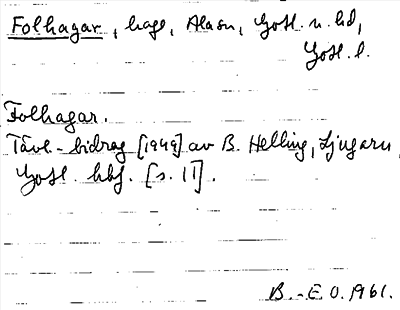 Folhagar, hage, Alskog, Gotl. n. hd,
Gotl. l.
Folhagar.
Tävl.-bidrag [1949] av B. Helling, Ljugarn,
Gotl. hbf. [s. 11].
B.-E O. 1961.